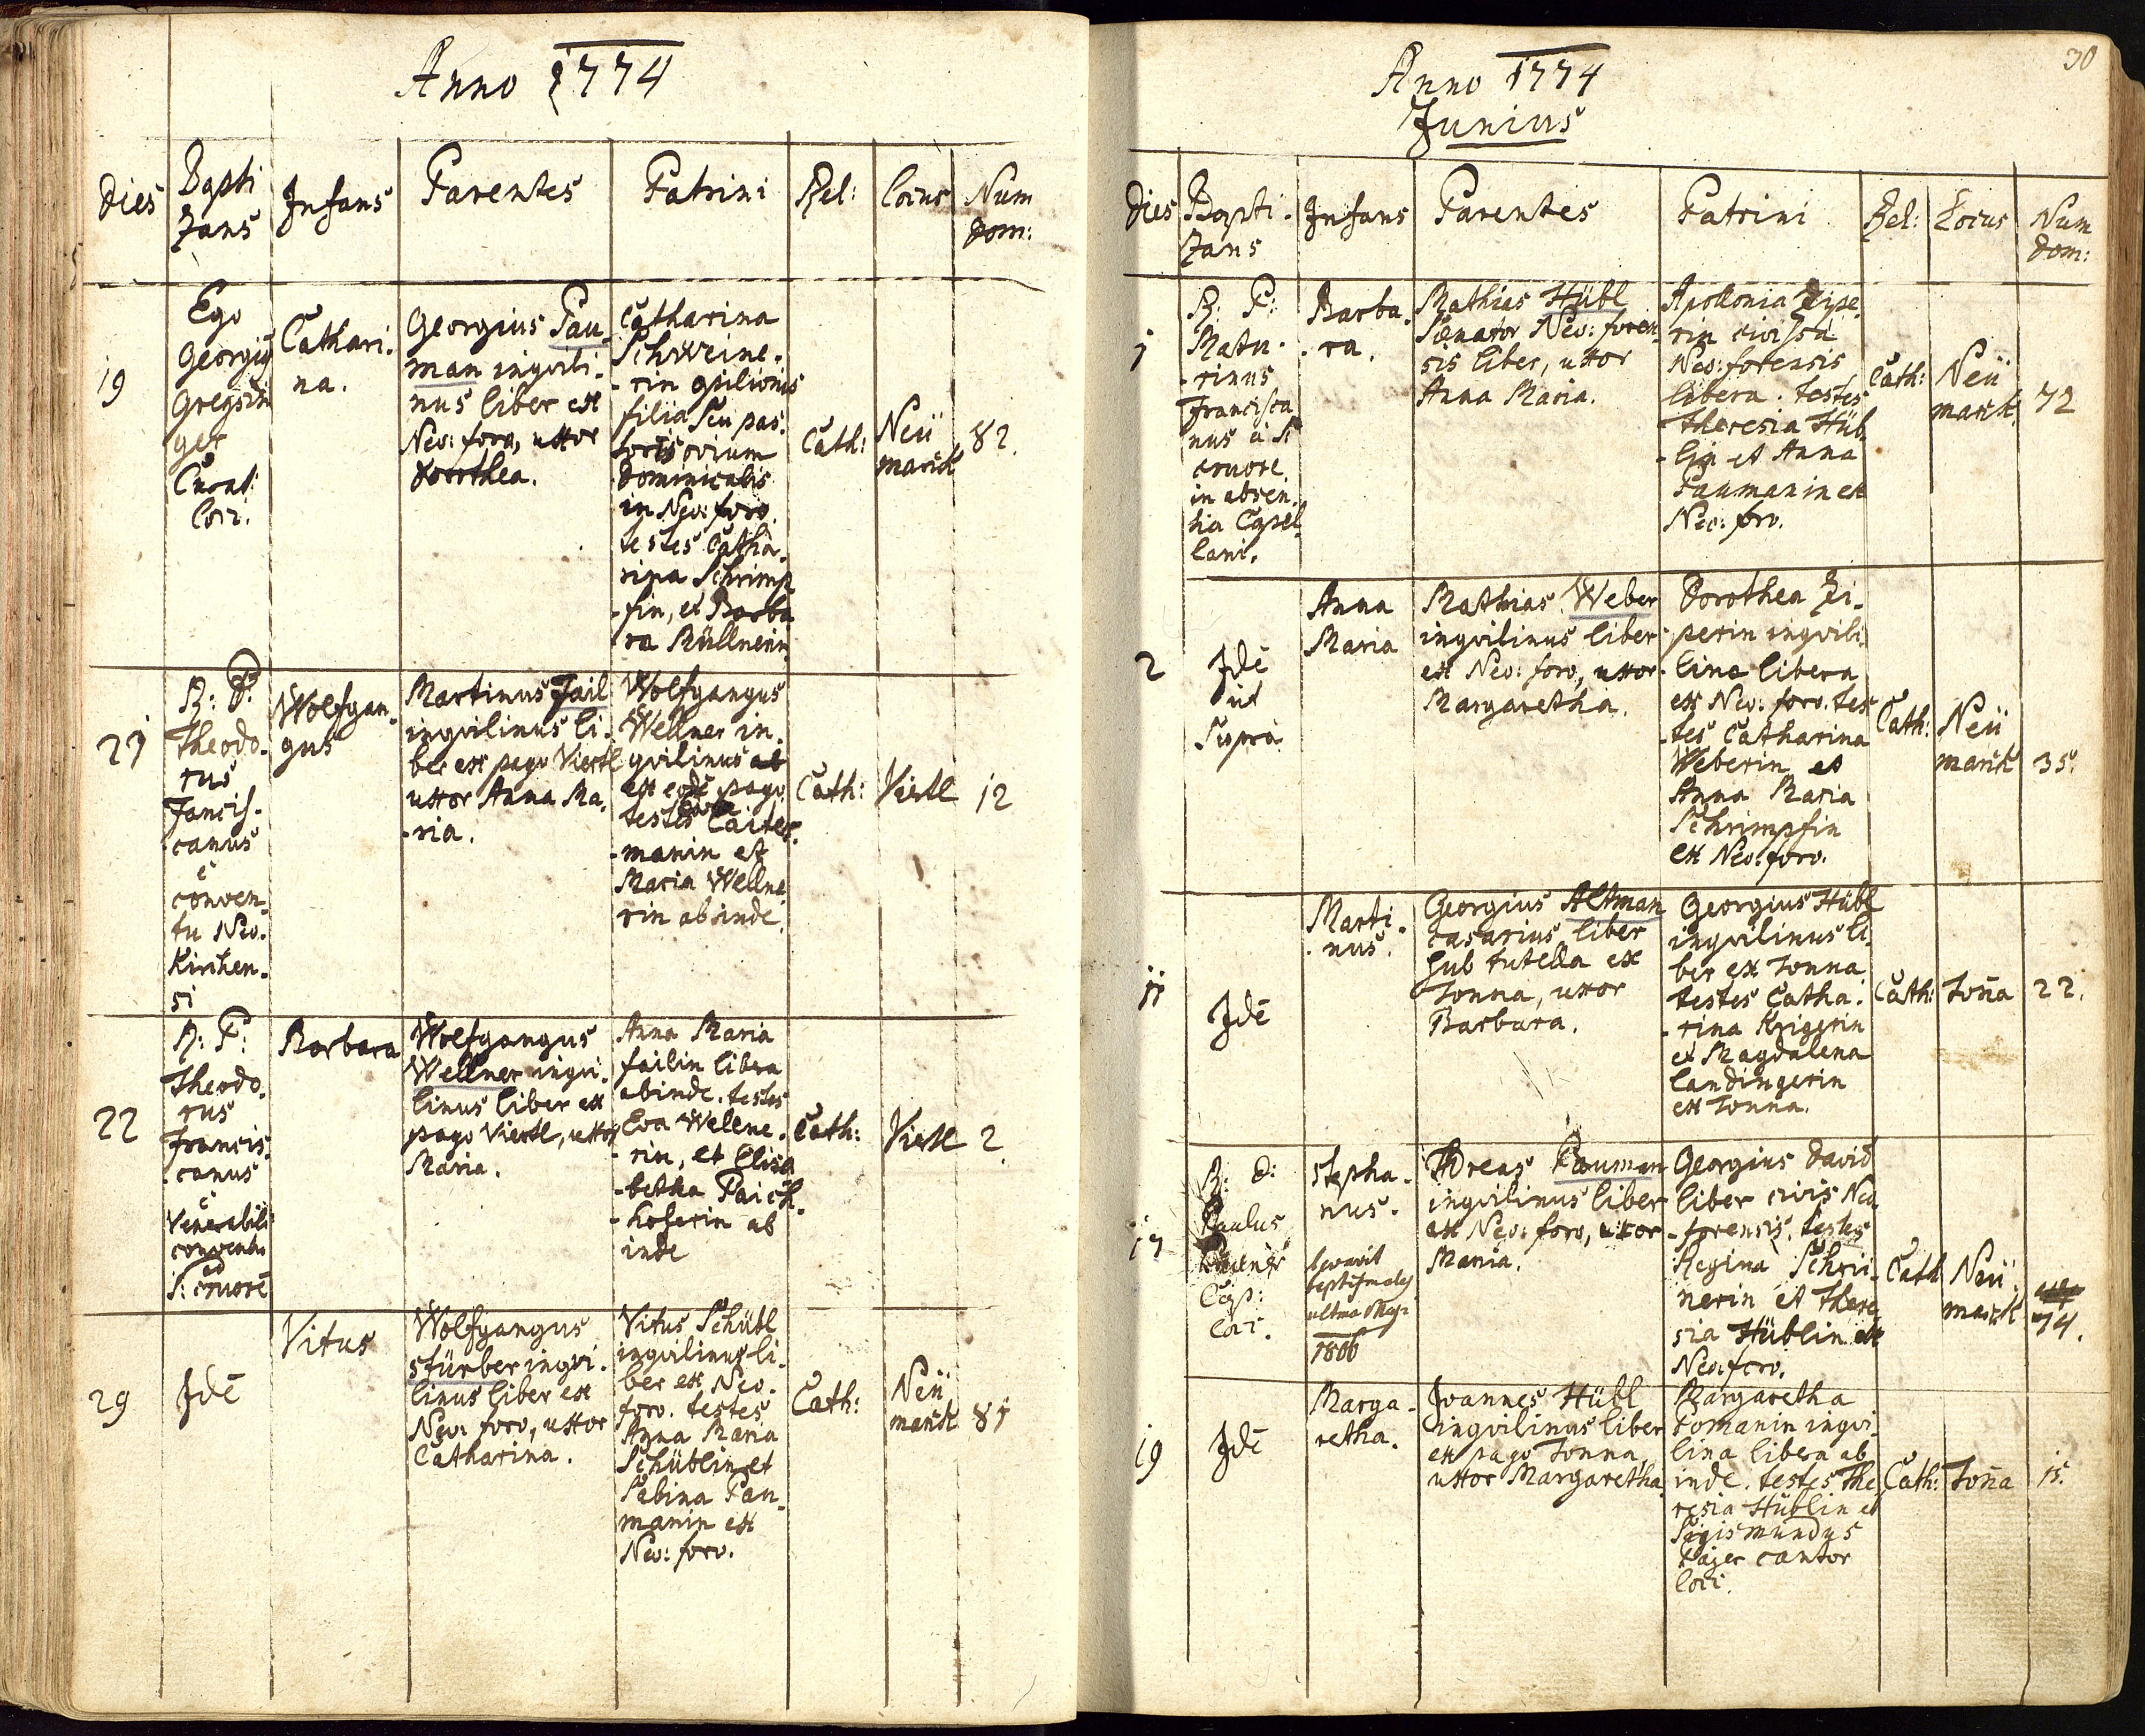 Anno 1774
Dies Bapti
zans Infans Parentes Patrini Rel: Locus Num
Dom:
19
Ego
Georgius
Gregorin
ger
Curat:
Loci.
Cathari.
na.
Georgius Pau-
man inqvili-
nus liber ex
Neo: foro, uxor
Dorothea.
Catharina
Schweine.
-rin opilionis
filia seu pas-
toris ovium
Dominicalis
in Neo: foro.
testes Catha-
rina Schrimp
-fin, et Barba
ra Müllnerin
Cath:
Neü
markt
82.
21
R: P:
Theodo-
rus
Francis-
canus
e
conven-
tu Neo-
kirchen-
si
Wolfgan-
gus
Martinus Fail
inqvilinus li-
ber ex pago Viertl
uxor Anna Ma-
-ria.
Wolfgangus
Wellner in-
qvilinus
ex eode pago
testes
-manin et
Maria Wellne
rin abinde.
Cath:
Viertl
12
22
R: P:
Theodo-
rus
Francis-
canus
e
Venerabili
conventu
ad
S: cruore
Barbara
Wolfgangus
Wellner inqvi-
linus liber ex
pago Viertl, uxor
Maria.
Anna Maria
failin libera
abinde. testes
Eva Wellne-
-rin, et Elisa
-betha Paich-
-hoferin ab
inde
Cath:
Viertl
2
29
Idē
Vitus
Wolfgangus
Stürber inqvi-
linus liber ex
Neo: foro, uxor
Catharina.
Vitus Schübl
inqvilinus li-
ber ex Neo-
foro. testes
Anna Maria
Schüblin et
Sabina Pau-
manin ex
Neo: foro.
Cath:
Neü
markt
81
30
Anno 1774
Junius
Dies Bapti-
zans Infans Parentes Patrini Rel: Locus Num
Dom:
1
R: P:
Matu-
-rinus
Francisca
nus a S:
cruore
in absen-
tia Capel
lani.
Barba-
-ra.
Mathias Hübl
Senator Neo: foren-
sis liber, uxor
Anna Maria.
Apollonia Zipe-
rin civissa
Neo: forensis
libera. testes
Theresia Hüb-
-lin et Anna
Paumanin ex
Neo: foro.
Cath:
Neü
markt
72
2
Idē
ut
Supra
Anna
Maria
Mathias Weber
inqvilinus liber
ex Neo: foro, uxor
Margaretha.
Dorothea Zi-
perin inqvili-
lina libera
ex Neo: foro. tes
tes Catharina
Weberin et
Anna Maria
Schrimpfin
ex Neo: foro.
Cath:
Neü
markt
35.
11
Idē
Marti-
-nus.
Georgius Altman
casarius liber
sub tutella ex
Tonna, uxor
Barbara.
Georgius Hübl
inqvilinus li-
ber ex Tonna
testes Catha-
-rina Krigerin
et Magdalena
Landingerin
ex Tonna.
Cath:
Toña
22.
17
R: D:
Paulus
Cap:
Loci.
Stepha-
nus.
levavit
ultma May
1806
Andreas Pauman
inqvilinus liber
ex Neo: foro, uxor
Maria.
Georgius David
liber civis Neo
-forensis. testes
Regina Schrei-
nerin et There
sia Hüblin ex
Neo: foro.
Cath
Neü
markt
74.
19
Idē
Marga-
retha.
Joannes Hübl
inqvilinus liber
ex pago Tonna,
uxor Margaretha
Margaretha
Tomanin inqvi-
lina libera ab
inde. testes The
resia Hüblin et
Sigismundus
Pajer cantor
loci.
Cath:
Toña
15.